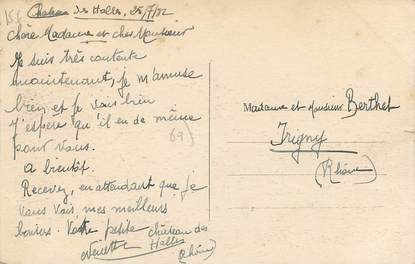 Chateau des Halles, 25/7/32
Chère Madame et cher Monsieur
Je suis très contente
maintenant, je m'amuse
bien et je vais bien
J'espère qu'il en de même
pour vous. 69)
A bientôt.
Recevez, en attendant que je
vous vois, mes meilleurs
baisers. Votre petite
château des
Halles
(Rhône)
Madame et Monsieur Berthet
Irigny
(Rhône)